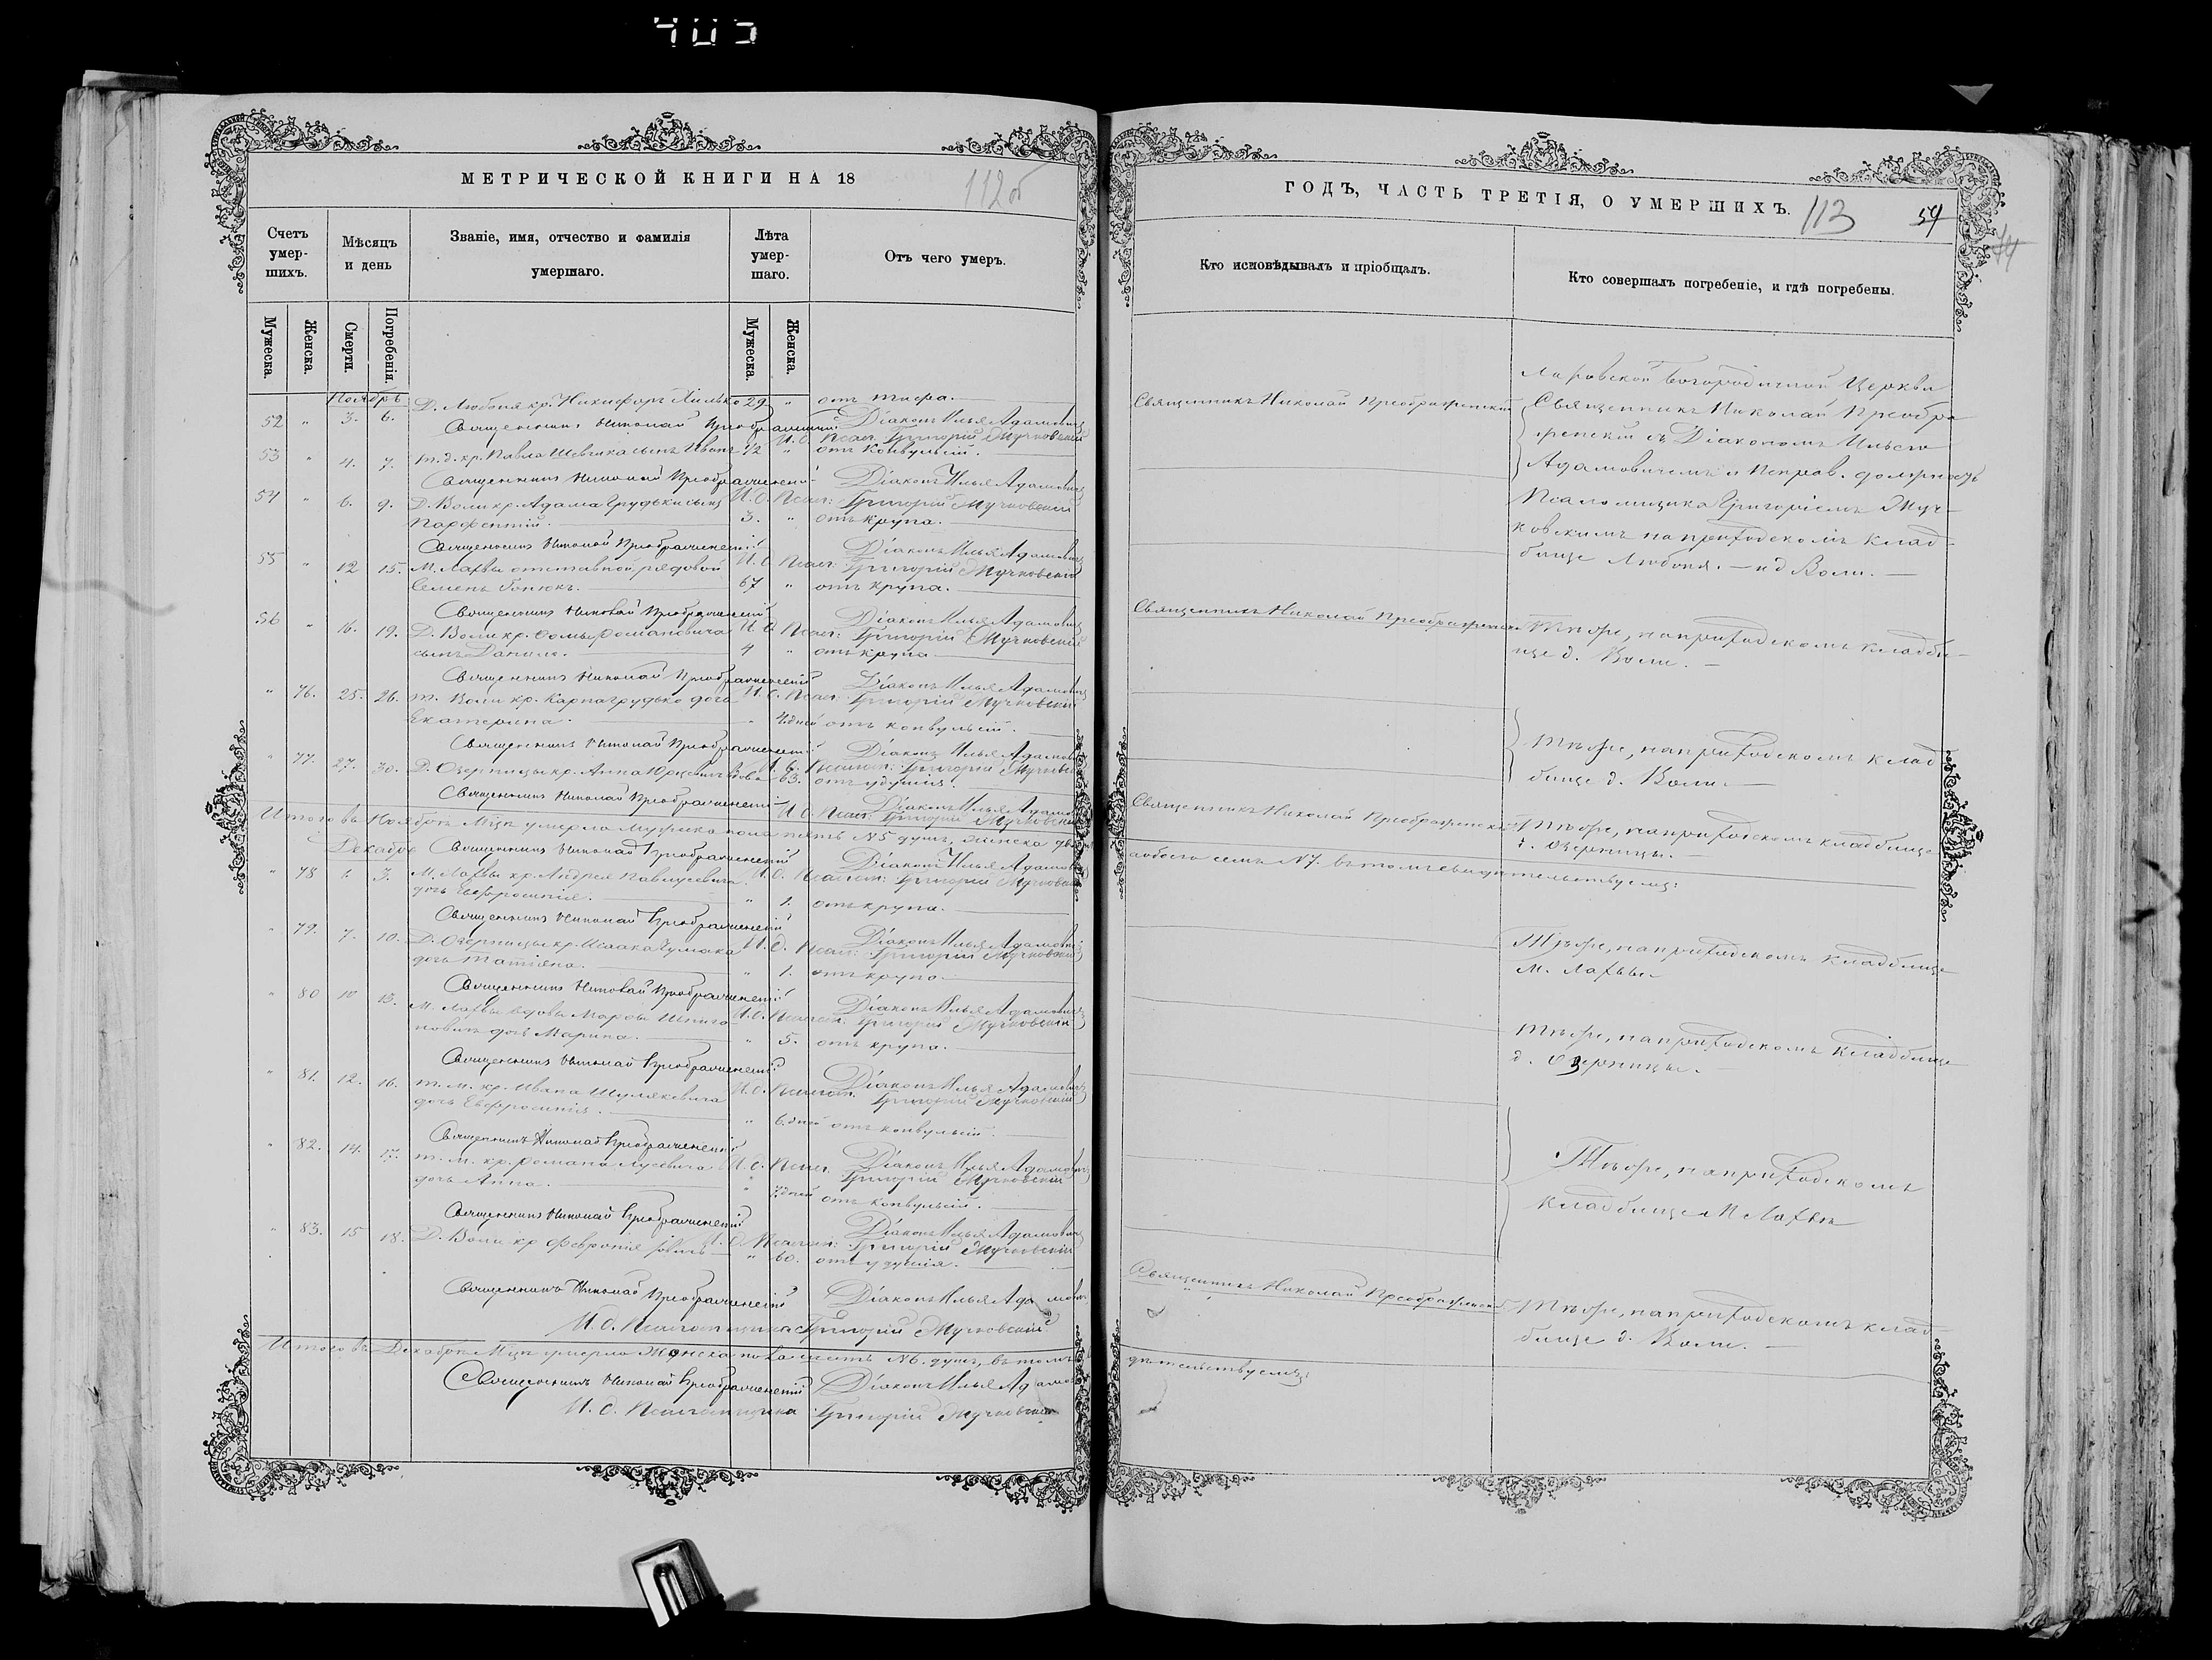 405
МЕТРИЧЕСКОЙ КНИГИ НА 18
112об
Счетъ умер-шихъ.
Мѣсяцъ и день
Званіе, имя, отчество и фамилія умершаго.
Лѣта умер-шаго.
Отъ чего умеръ.
Мужеска.
Женска.
Смерти.
Погребенія.
Мужеска.
Женска.
Ноябрь
52 " 3. 6. Д. Любоня кр. Никифоръ Хилько 29 " отъ тифа.
Священникъ Николай Преображенскій Діаконъ Илья Адамовичъ
И. д. Псал. Григорій Жучковскій
53 " 4. 7. т. д. кр. Павла Шевчика сынъ Иванъ 1/2 " отъ конвульсій.
Священникъ Николай Преображенскій Діаконъ Илья Адамовичъ
И. д. Псал: Григорій Жучковскій
54 " 6. 9. Д. Воли кр. Адама Грудьки сынъ
Парфентій. 3. " отъ крупа.
Священникъ Николай Преображенскій Діаконъ Илья Адамовичъ
И. д. Псал: Григорій Жучковскій
55 " 12 15. М. Лахвы отставной рядовой
Семенъ 67 " отъ крупа.
Священникъ Николай Преображенскій Діаконъ Илья Адамовичъ
И. д. Псал: Григорій Жучковскій
56 " 16. 19. Д. Воли кр. Ѳомы Романовича
сынъ Даниилъ. 4 " отъ крупа
Священникъ Николай Преображенскій Діаконъ Илья Адамовичъ
И. д. Псал: Григорій Жучковскій
" 76. 25. 26. т. Воли кр. Карпа Грудько дочь
Екатерина. " дней отъ конвульсій.
Священникъ Николай Преображенскій Діаконъ Илья Адамовичъ
И. д. Псалом: Григорій Жучковскій
" 77. 27. 30. Д. Озерницы кр. Анна вдова 63. отъ удушія.
Священникъ Николай Преображенскій Діаконъ Илья Адамовичъ
И. д. Псал: Григорій Жучковскій
Итого въ Ноябрѣ Мцѣ умерло мужеска пола пять №5 душъ, женска двѣ
Декабрь Священникъ Николай Преображенскій Діаконъ Илья Адамовичъ
И. д. Псалом: Григорій Жучковскій
" 78 1. 3. М. Лахвы кр. Андрея Павлусевича
дочь Евфросинія. " 1. отъ крупа.
Священникъ Николай Преображенскій Діаконъ Илья Адамовичъ
И. д. Псал: Григорій Жучковскій
" 79. 7. 10. Д. Озерницы кр. Исаака Чумака
дочь Татіяна. " 1. отъ крупа
Священникъ Николай Преображенскій Діаконъ Илья Адамовичъ
И. д. Псалом. Григорій Жучковскій
" 80 10 13. М. Лахвы вдовы Марѳы
дочь Марина. " 5. отъ крупа.
Священникъ Николай Преображенскій Діаконъ Илья Адамовичъ
И. д. Псалом. Григорій Жучковскій
" 81. 12. 16. т. м. кр. Ивана Шулякевича
дочь Евфросинія. " 6. дней отъ конвульсій.
Священникъ Николай Преображенскій Діаконъ Илья Адамовичъ
И. д. Псал. Григорій Жучковскій
" 82. 14. 17. т. м. кр. Романа Лусевича
дочь Анна. " дней отъ конвульсій.
Священникъ Николай Преображенскій Діаконъ Илья Адамовичъ
И. д. Псалом: Григорій Жучковскій
" 83. 15 18. Д. Воли кр Февронія " 60. отъ удушія.
Священникъ Николай Преображенскій Діаконъ Илья Адамовичъ
И. д. Псаломщика Григорій Жучковскій
Итого въ Декабрѣ Мцѣ умерло Женска пола шесть №6. душъ, въ томъ
Священникъ Николай Преображенскій Діаконъ Илья Адамовичъ
И. д. Псаломщика Григорій Жучковскій
ГОДЪ, ЧАСТЬ ТРЕТІЯ, О УМЕРШИХЪ.
113
54
Кто исповѣдывалъ и пріобщалъ.
Кто совершалъ погребеніе, и гдѣ погребены.
Священникъ Николай Преображенскій
Лаховской Богородичной Церкви
Священникъ Николай Преобра
женскій съ Діакономъ Ильею
Адамовичемъ и исправ. должность
Псаломщика Григоріемъ Жуч-
ковскимъ на приходскомъ клад
бищѣ Любоня. — и д Воли. —
Священникъ Николай Преображенскій
Тѣже, на приходскомъ кладби-
щѣ д. Воли. —
Тѣже, на приходскомъ клад
бищѣ д. Воли. —
Священникъ Николай Преображенскій
Тѣже, на приходскомъ кладбищѣ
д. Озерницы. —
а обоего семь №7. въ томъ свидѣтельствуемъ:
Тѣже, на приходскомъ кладбищѣ
М. Лахвы
Тѣже, на приходскомъ кладбищѣ
д. Озерницы. —
Тѣже, на приходскомъ
кладбищѣ М Лахвы
Священникъ Николай Преображенскій
Тѣже, на приходскомъ клад-
бищѣ д. Воли. —
дѣтельствуемъ: